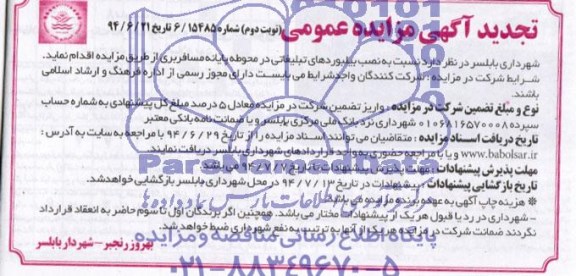 تجدید آگهی مزایده عمومی (نوبت دوم) شماره ۶/۱۵۴۸۵ تاریخ ۹۴/۶/۲۱
شهرداری بابلسر در نظر دارد نسبت به نصب بیلبوردهای تبلیغاتی در محوطه پایانه مسافربری از طریق مزایده اقدام نماید.
شرایط شرکت در مزایده : شرکت کنندگان واجد شرایط می بایست دارای مجوز رسمی از اداره فرهنگ و ارشاد اسلامی
باشند.
نوع و مبلغ تضمین شرکت در مزایده : واریز تضمین شرکت در مزایده معادل ۵ درصد مبلغ کل پیشنهادی به شماره حساب
سپرده ۰۱۰۶۸۱۶۵۷۰۰۰۸ شهرداری نزد بانک ملی مرکزی بابلسر و یا ضمانت نامه بانکی معتبر
تاریخ دریافت اسناد مزایده : متقاضیان می توانند اسناد مزایده را از تاریخ ۹۴/۶/۲۹ با مراجعه به سایت به آدرس :
www.babolsar.ir و یا با مراجعه حضوری به واحد قراردادهای شهرداری بابلسر دریافت نمایند.
مهلت پذیرش پیشنهادات : مهلت پذیرش پیشنهادات تا تاریخ می باشد.
تاریخ بازگشایی پیشنهادات : پیشنهادات در تاریخ ۹۴/۷/۱۳ در محل شهرداری بابلسر بازگشایی خواهد شد.
* هزینه چاپ آگهی به عهده برنده مزایده می باشد.
- شهرداری در رد یا قبول هر یک از پیشنهادات مختار می باشد. همچنین اگر برندگان اول تا سوم حاضر به انعقاد قرارداد
نگردند ضمانت شرکت در مزایده هر یک از آنها به ترتیب به نفع شهرداری ضبط خواهد شد.
بهروز رنجبر – شهردار بابلسر
ParsNamadData
پایگاه اطلاع رسانی مناقصه و مزایده
۰۲۱-۸۸۳۴۹۶۷۰-۵